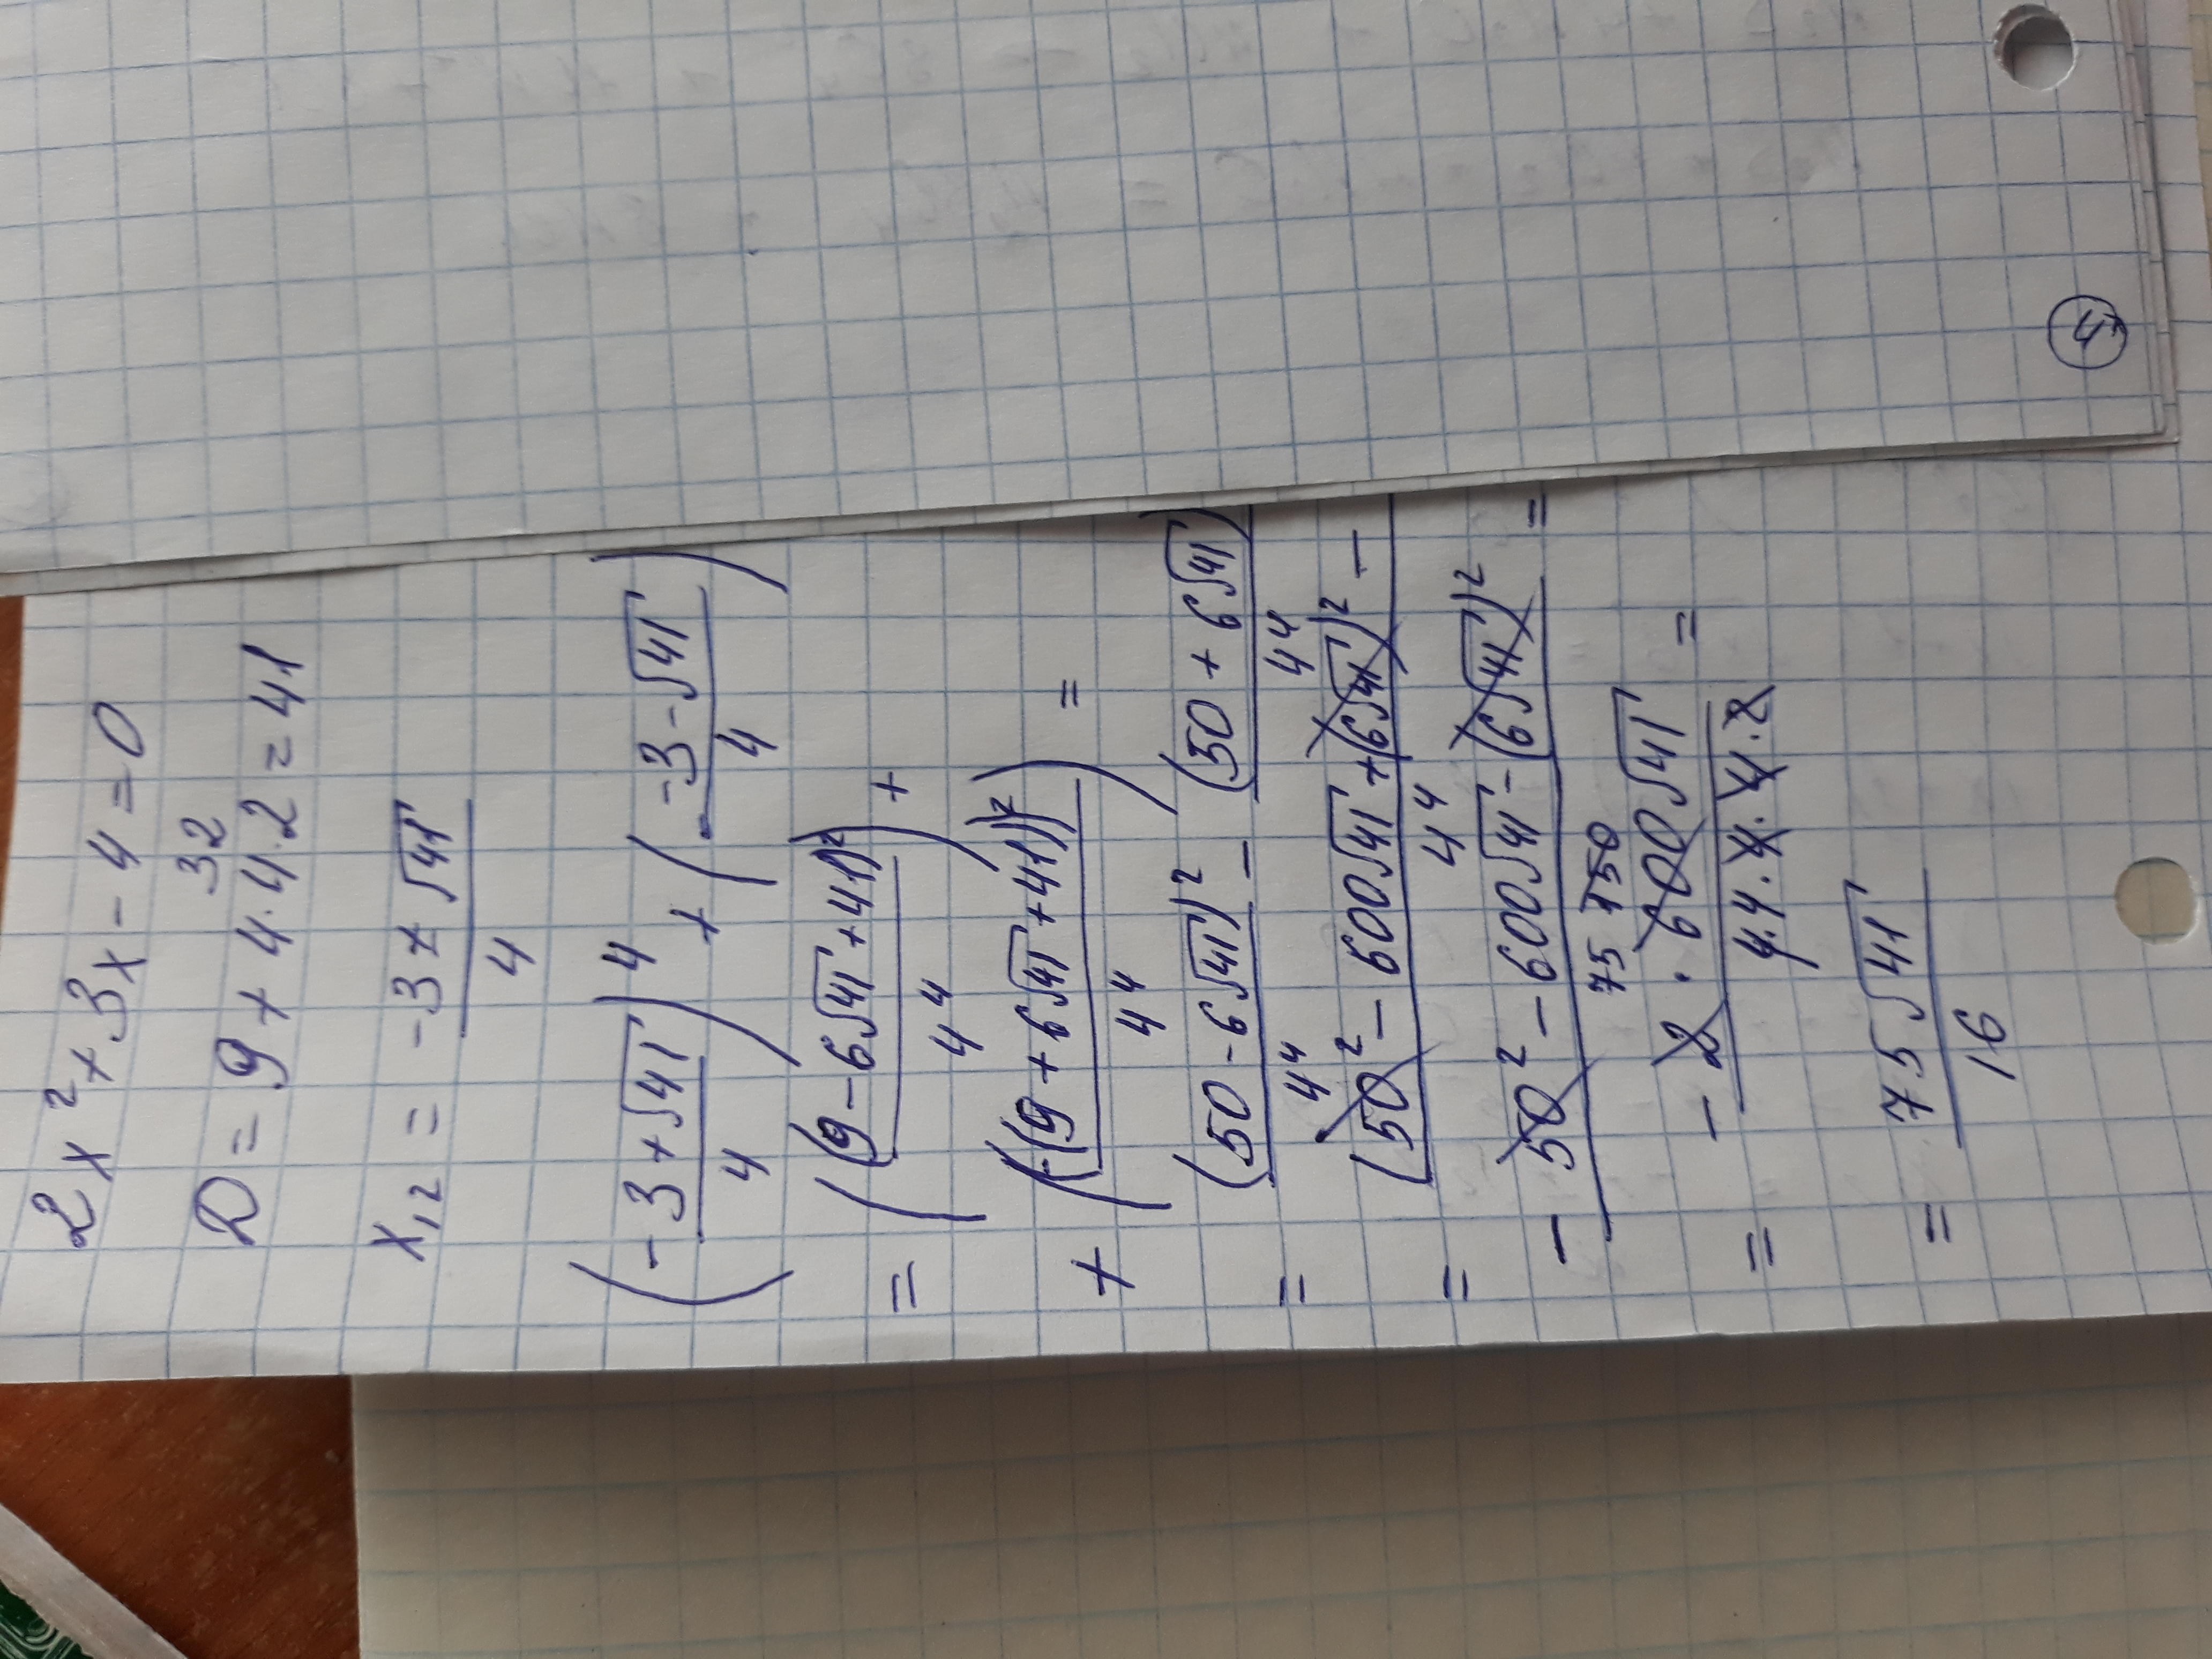 2x² + 3x - 4 = 0
32
D = 9 + 4·4·2 = 41
x₁₂ = (-3 ± √41)/4
((-3 + √41)/4)⁴ + ((-3 - √41)/4)
= ((9 - 6√41 + 41)²/4⁴) +
+ (((9 + 6√41 + 41))²/4⁴) =
= (50 - 6√41)²/4⁴ - (50 + 6√41)/4⁴
= (50² - 600√41 + (6√41)² -/4⁴
- 50² - 600√41 - (6√41)²/4⁴ =
75 150
= - 2·600√41/4·4·4·4·2 =
= 75√41/16
4